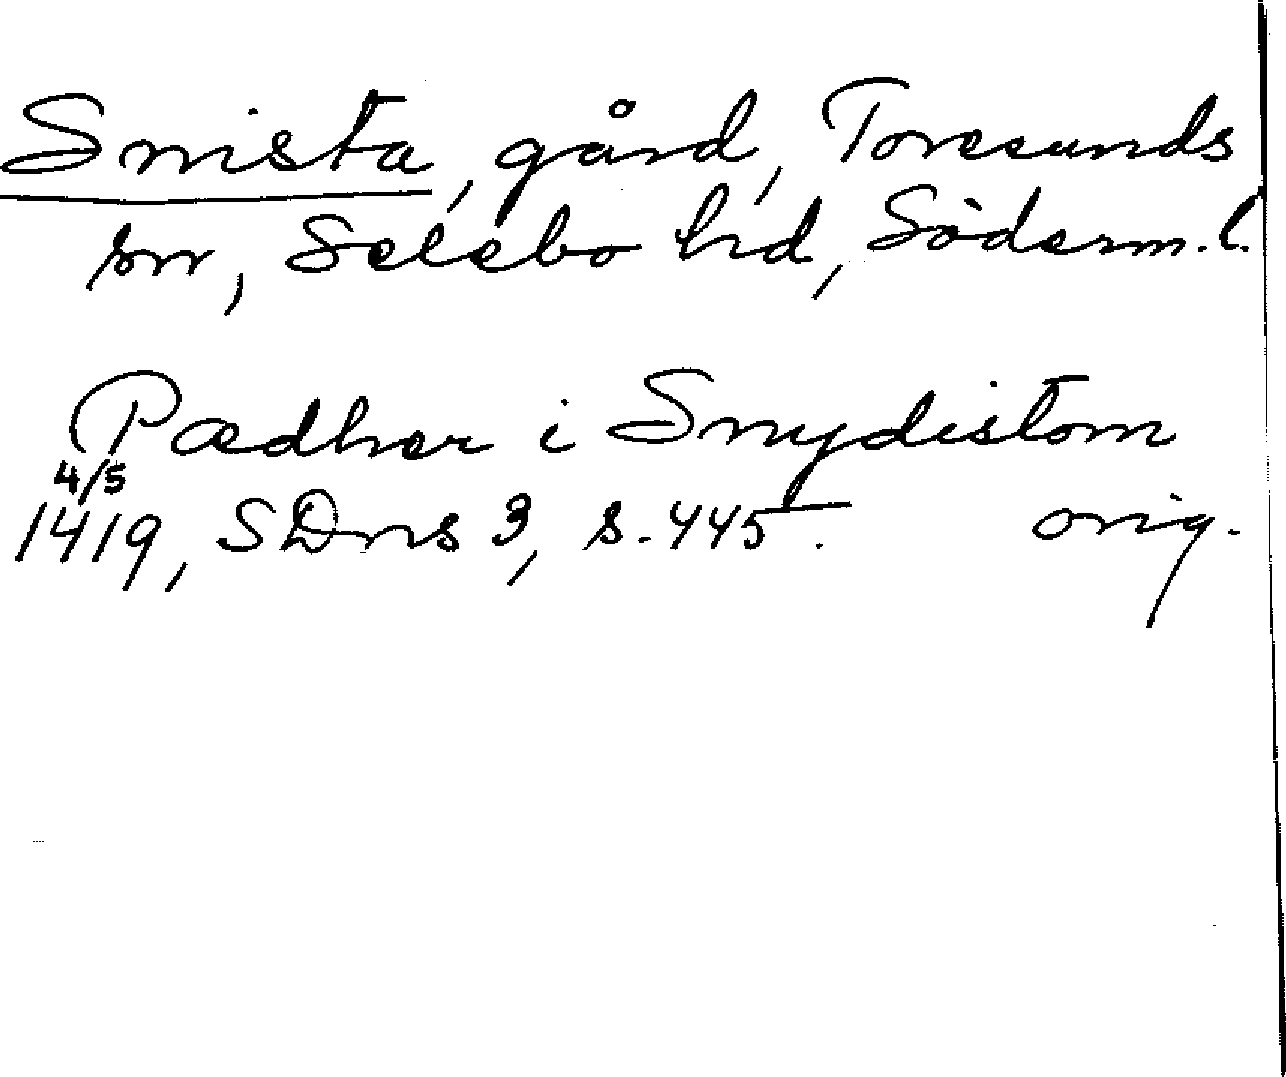 Snista, gård, Toresunds
sn, Selebo hd, Söderm. l.
Pædher i Snydistom
4/5
1419, SDns 3, s. 445. orig.